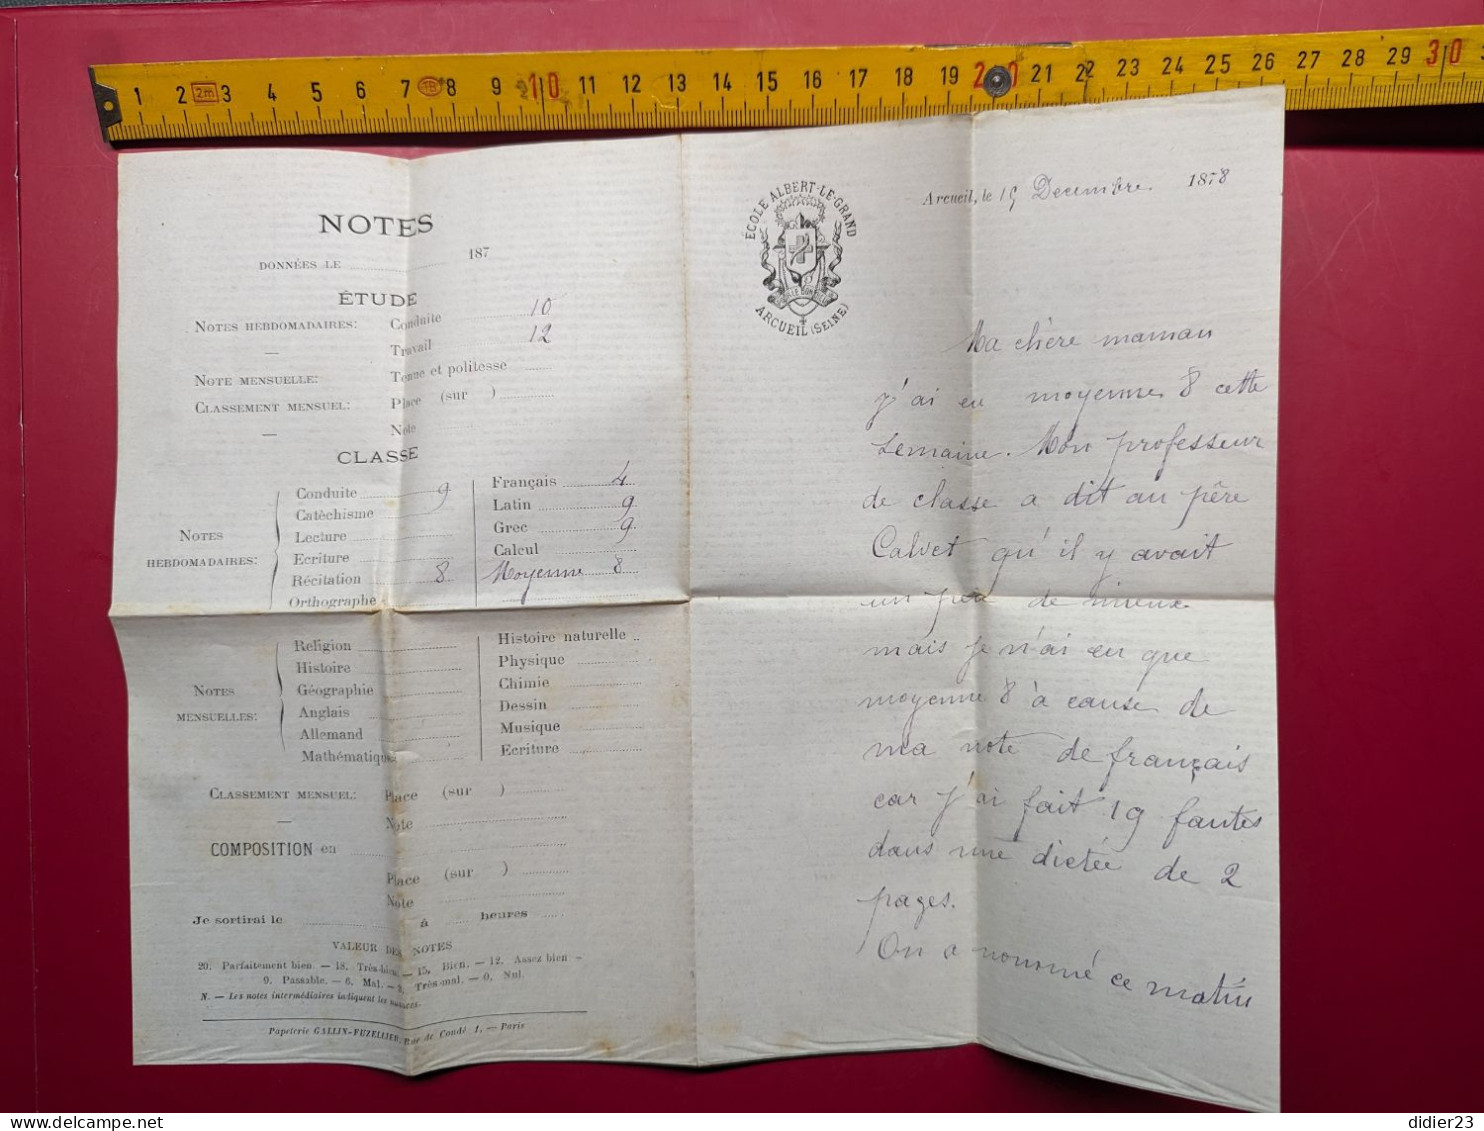 1 2 2m 3 4 5 6 7 8 9 10 11 12 13 14 15 16 17 18 19 20 21 22 23 24 25 26 27 28 29 30
NOTES
DONNÉES LE 187
ÉTUDE
NOTES HEBDOMADAIRES: Conduite 10
— Travail 12
NOTE MENSUELLE: Tenue et politesse
CLASSEMENT MENSUEL: Place (sur )
— Note
CLASSE
NOTES HEBDOMADAIRES:
Conduite 9
Catéchisme
Lecture
Ecriture
Récitation 8
Orthographe
Français 4
Latin 9
Grec 9
Calcul
Moyenne 8
NOTES MENSUELLES:
Religion
Histoire
Géographie
Anglais
Allemand
Mathématiques
Histoire naturelle
Physique
Chimie
Dessin
Musique
Ecriture
CLASSEMENT MENSUEL: Place (sur )
— Note
COMPOSITION en
Place (sur )
Note
Je sortirai le à heures
VALEUR DES NOTES
20. Parfaitement bien — 18. Très-bien — 15. Bien. — 12. Assez bien —
9. Passable. — 6. Mal. — 3. Très-mal. — 0. Nul.
N. — Les notes intermédiaires indiquent les nuances.
Papeterie GALLIN-FUZELLIER, Rue de Condé 1. — Paris
ÉCOLE ALBERT-LE-GRAND
ARCUEIL (SEINE)
Arcueil, le 19 Decembre 1878
Ma chère maman
j'ai eu moyenne 8 cette
semaine. Mon professeur
de classe a dit au père
Calvet qu'il y avait
un peu de mieux
mais je n'ai eu que
moyenne 8 à cause de
ma note de français
car j'ai fait 19 fautes
dans une dictée de 2
pages.
On a nommé ce matin
didier23